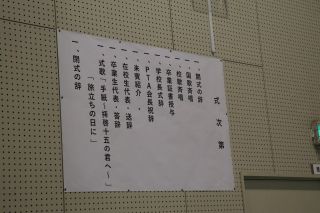 式次第
一、開式の辞
一、国歌斉唱
一、校歌斉唱
一、卒業証書授与
一、学校長式辞
一、PTA会長祝辞
一、来賓紹介
一、在校生代表・送辞
一、卒業生代表・答辞
一、式歌「手紙～拝啓十五の君へ～」
「旅立ちの日に」
一、閉式の辞